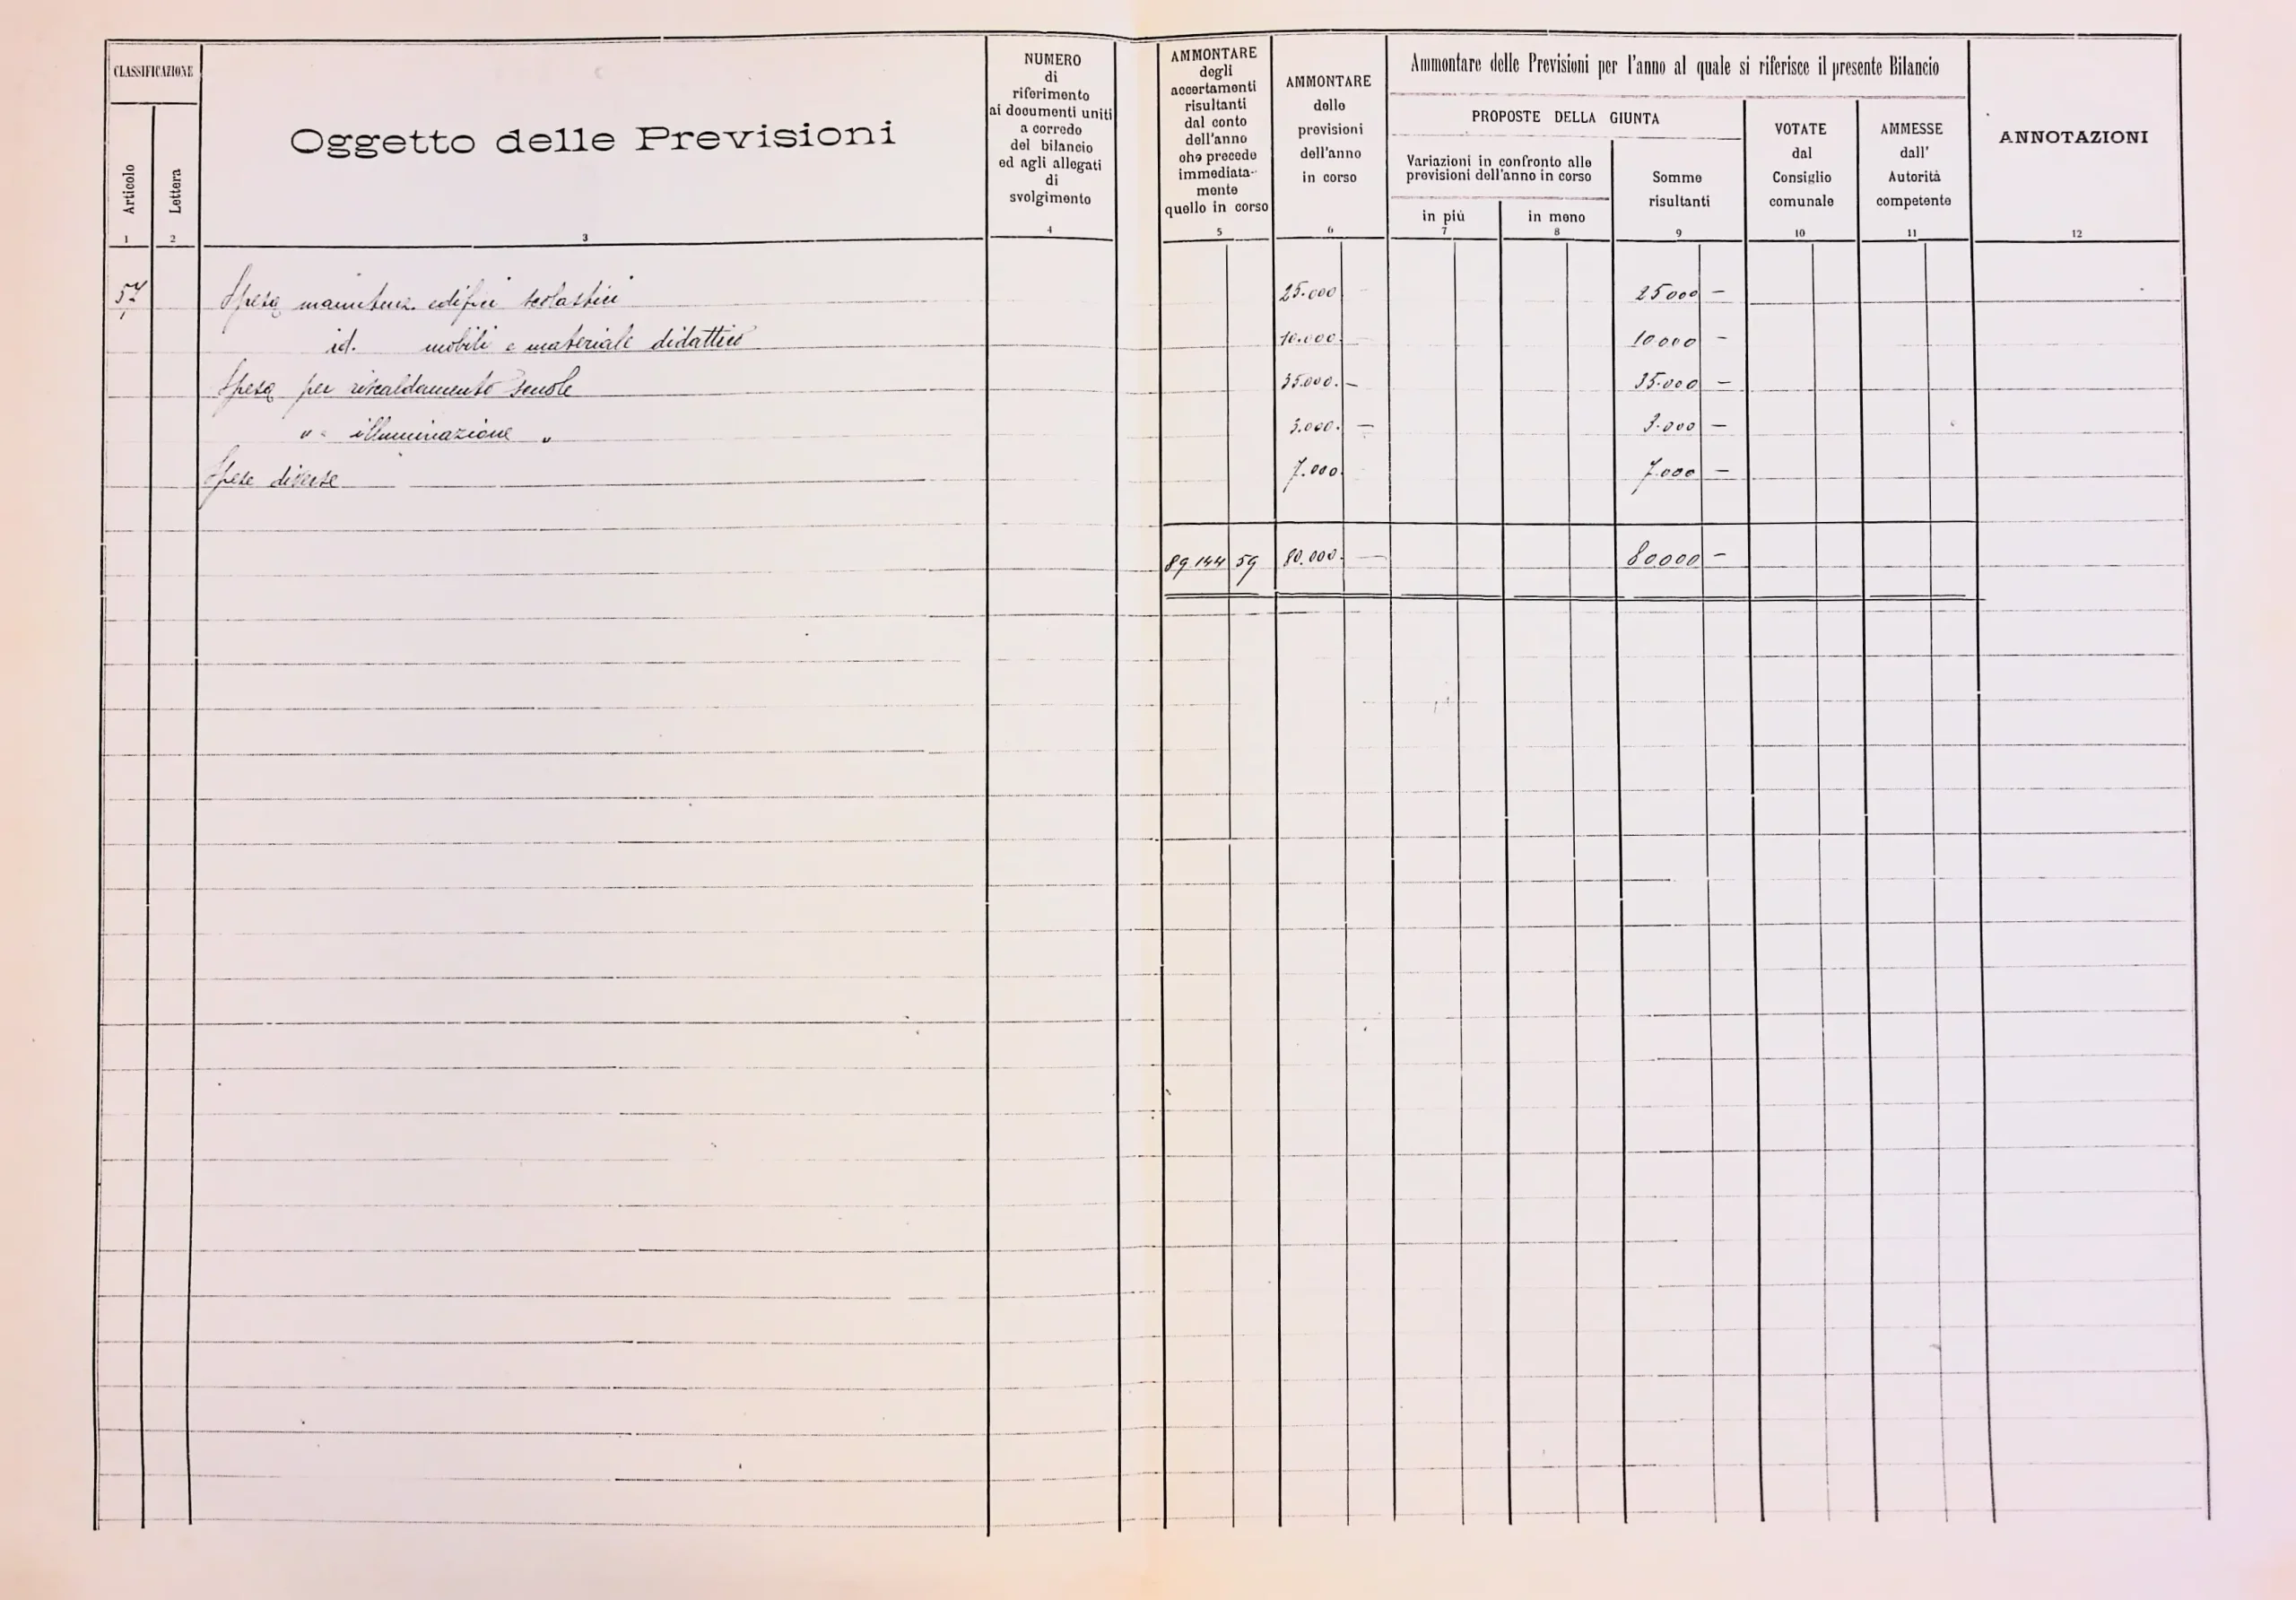 CLASSIFICAZIONE
Articolo
1
Lettera
2
Oggetto delle Previsioni
3
NUMERO
di
riferimento
ai documenti uniti
a corredo
del bilancio
ed agli allegati
di
svolgimento
4
AMMONTARE
degli
accertamenti
risultanti
dal conto
dell'anno
che precede
immediata-
mente
quello in corso
5
AMMONTARE
delle
previsioni
dell'anno
in corso
6
Ammontare delle Previsioni per l'anno al quale si riferisce il presente Bilancio
PROPOSTE DELLA GIUNTA
Variazioni in confronto alle
previsioni dell'anno in corso
in più
7
in meno
8
Somme
risultanti
9
VOTATE
dal
Consiglio
comunale
10
AMMESSE
dall'
Autorità
competente
11
ANNOTAZIONI
12
57 Spesa manutenz. edifici scolastici 25.000 — 25000 —
id. mobili e materiale didattico 10.000 — 10000 —
Spesa per riscaldamento scuole 35.000. — 35.000 —
" " illuminazione " 3.000. — 3.000 —
Spese diverse 7.000 — 7.000 —
89 144 59 80.000. — 80000 —